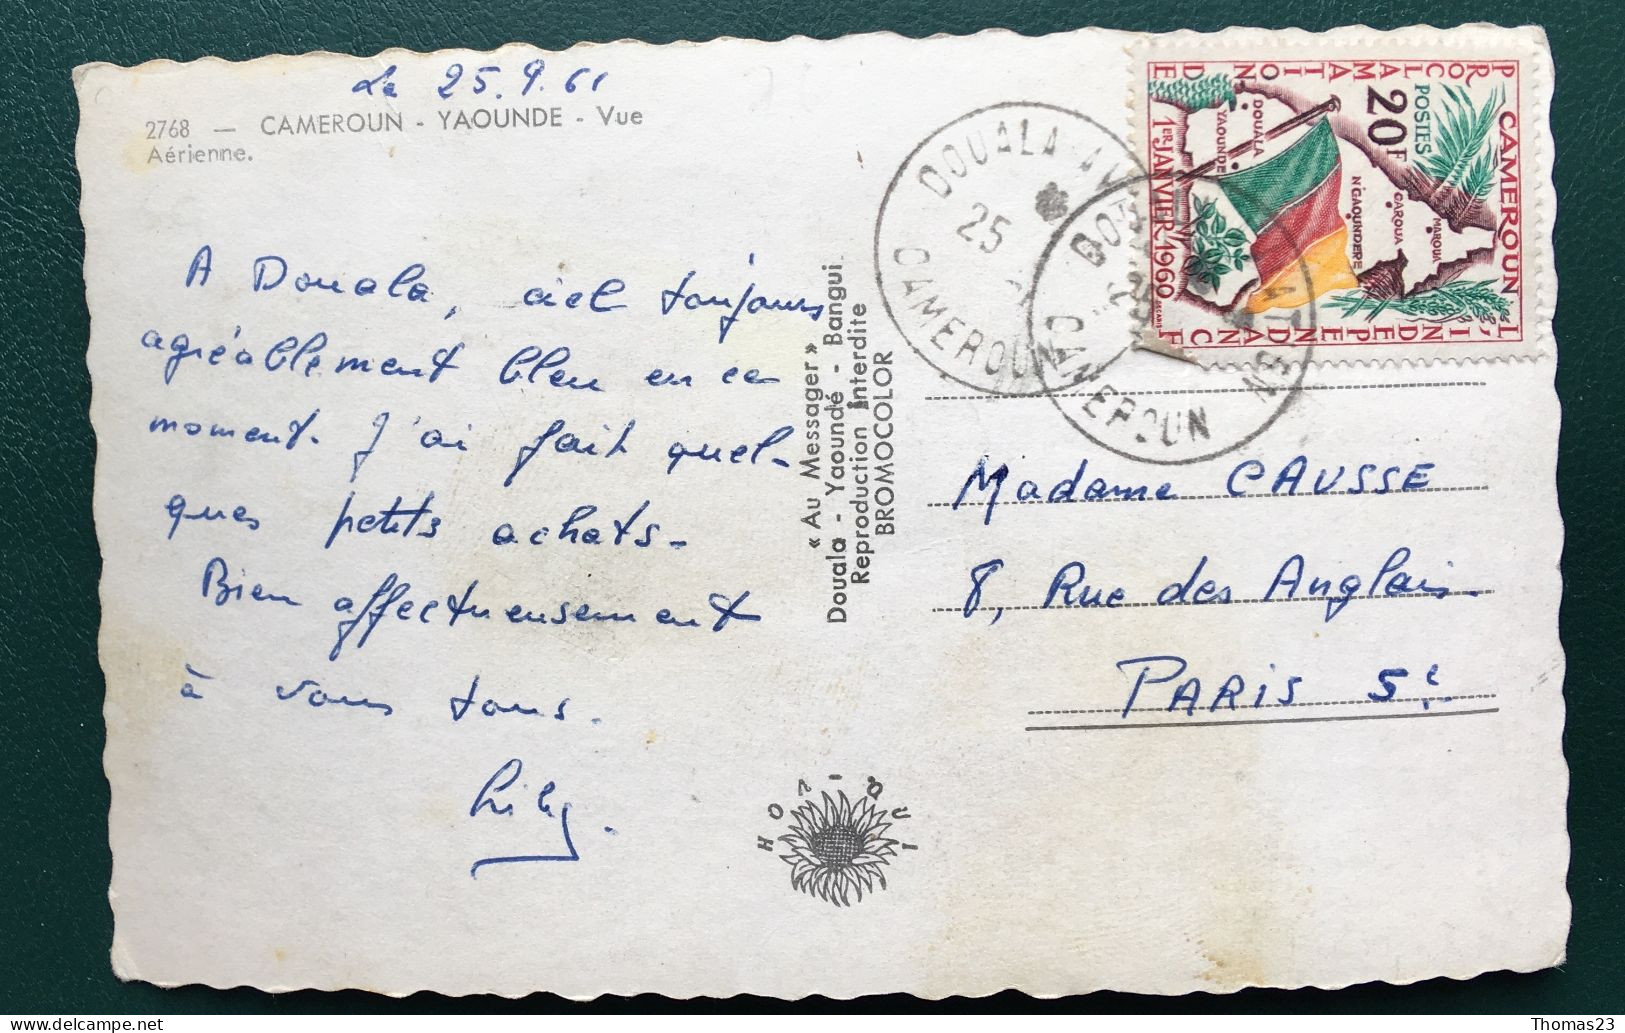 Le 25.9.61
2768 — CAMEROUN - YAOUNDE - Vue
Aérienne.
A Douala, ciel toujours
agréablement bleu en ce
moment. J'ai fait quel-
ques petits achats.
Bien affectueusement
à vous tous.
Lily.
« Au Messager »
Douala - Yaoundé - Bangui
Reproduction Interdite
BROMOCOLOR
HOLIQUI
DOUALA
25
CAMEROUN
CAMEROUN
PROCLAMATION DE
L'INDEPENDANCE
CAMEROUN
POSTES
20F
1ER JANVIER 1960
DOUALA
YAOUNDE
N'GAOUNDERE
GAROUA
MAROUA
DECARIS
Madame CAUSSE
8, Rue des Anglais.
PARIS 5e.
Thomas23